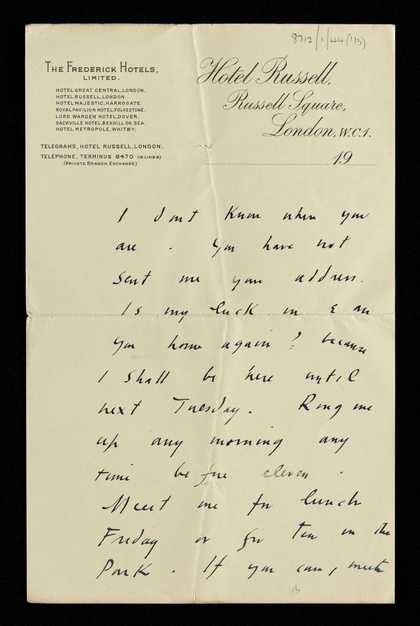 8712/1/44(113)
THE FREDERICK HOTELS,
LIMITED.
HOTEL GREAT CENTRAL, LONDON.
HOTEL RUSSELL, LONDON.
HOTEL MAJESTIC, HARROGATE.
ROYAL PAVILION HOTEL, FOLKESTONE.
LORD WARDEN HOTEL, DOVER.
SACKVILLE HOTEL, BEXHILL ON SEA.
HOTEL METROPOLE, WHITBY.
TELEGRAMS, HOTEL RUSSELL, LONDON.
TELEPHONE, TERMINUS 8470 (10 LINES)
(PRIVATE BRANCH EXCHANGE)
Hotel Russell,
Russell Square,
London, W.C.1.
19
I dont know when you
are. You have not
sent me your address.
Is my luck in & are
you home again? because
I shall be here until
next Tuesday. Ring me
up any morning any
time before eleven.
Meet me for lunch
Friday or for Tea in the
Park. If you can,